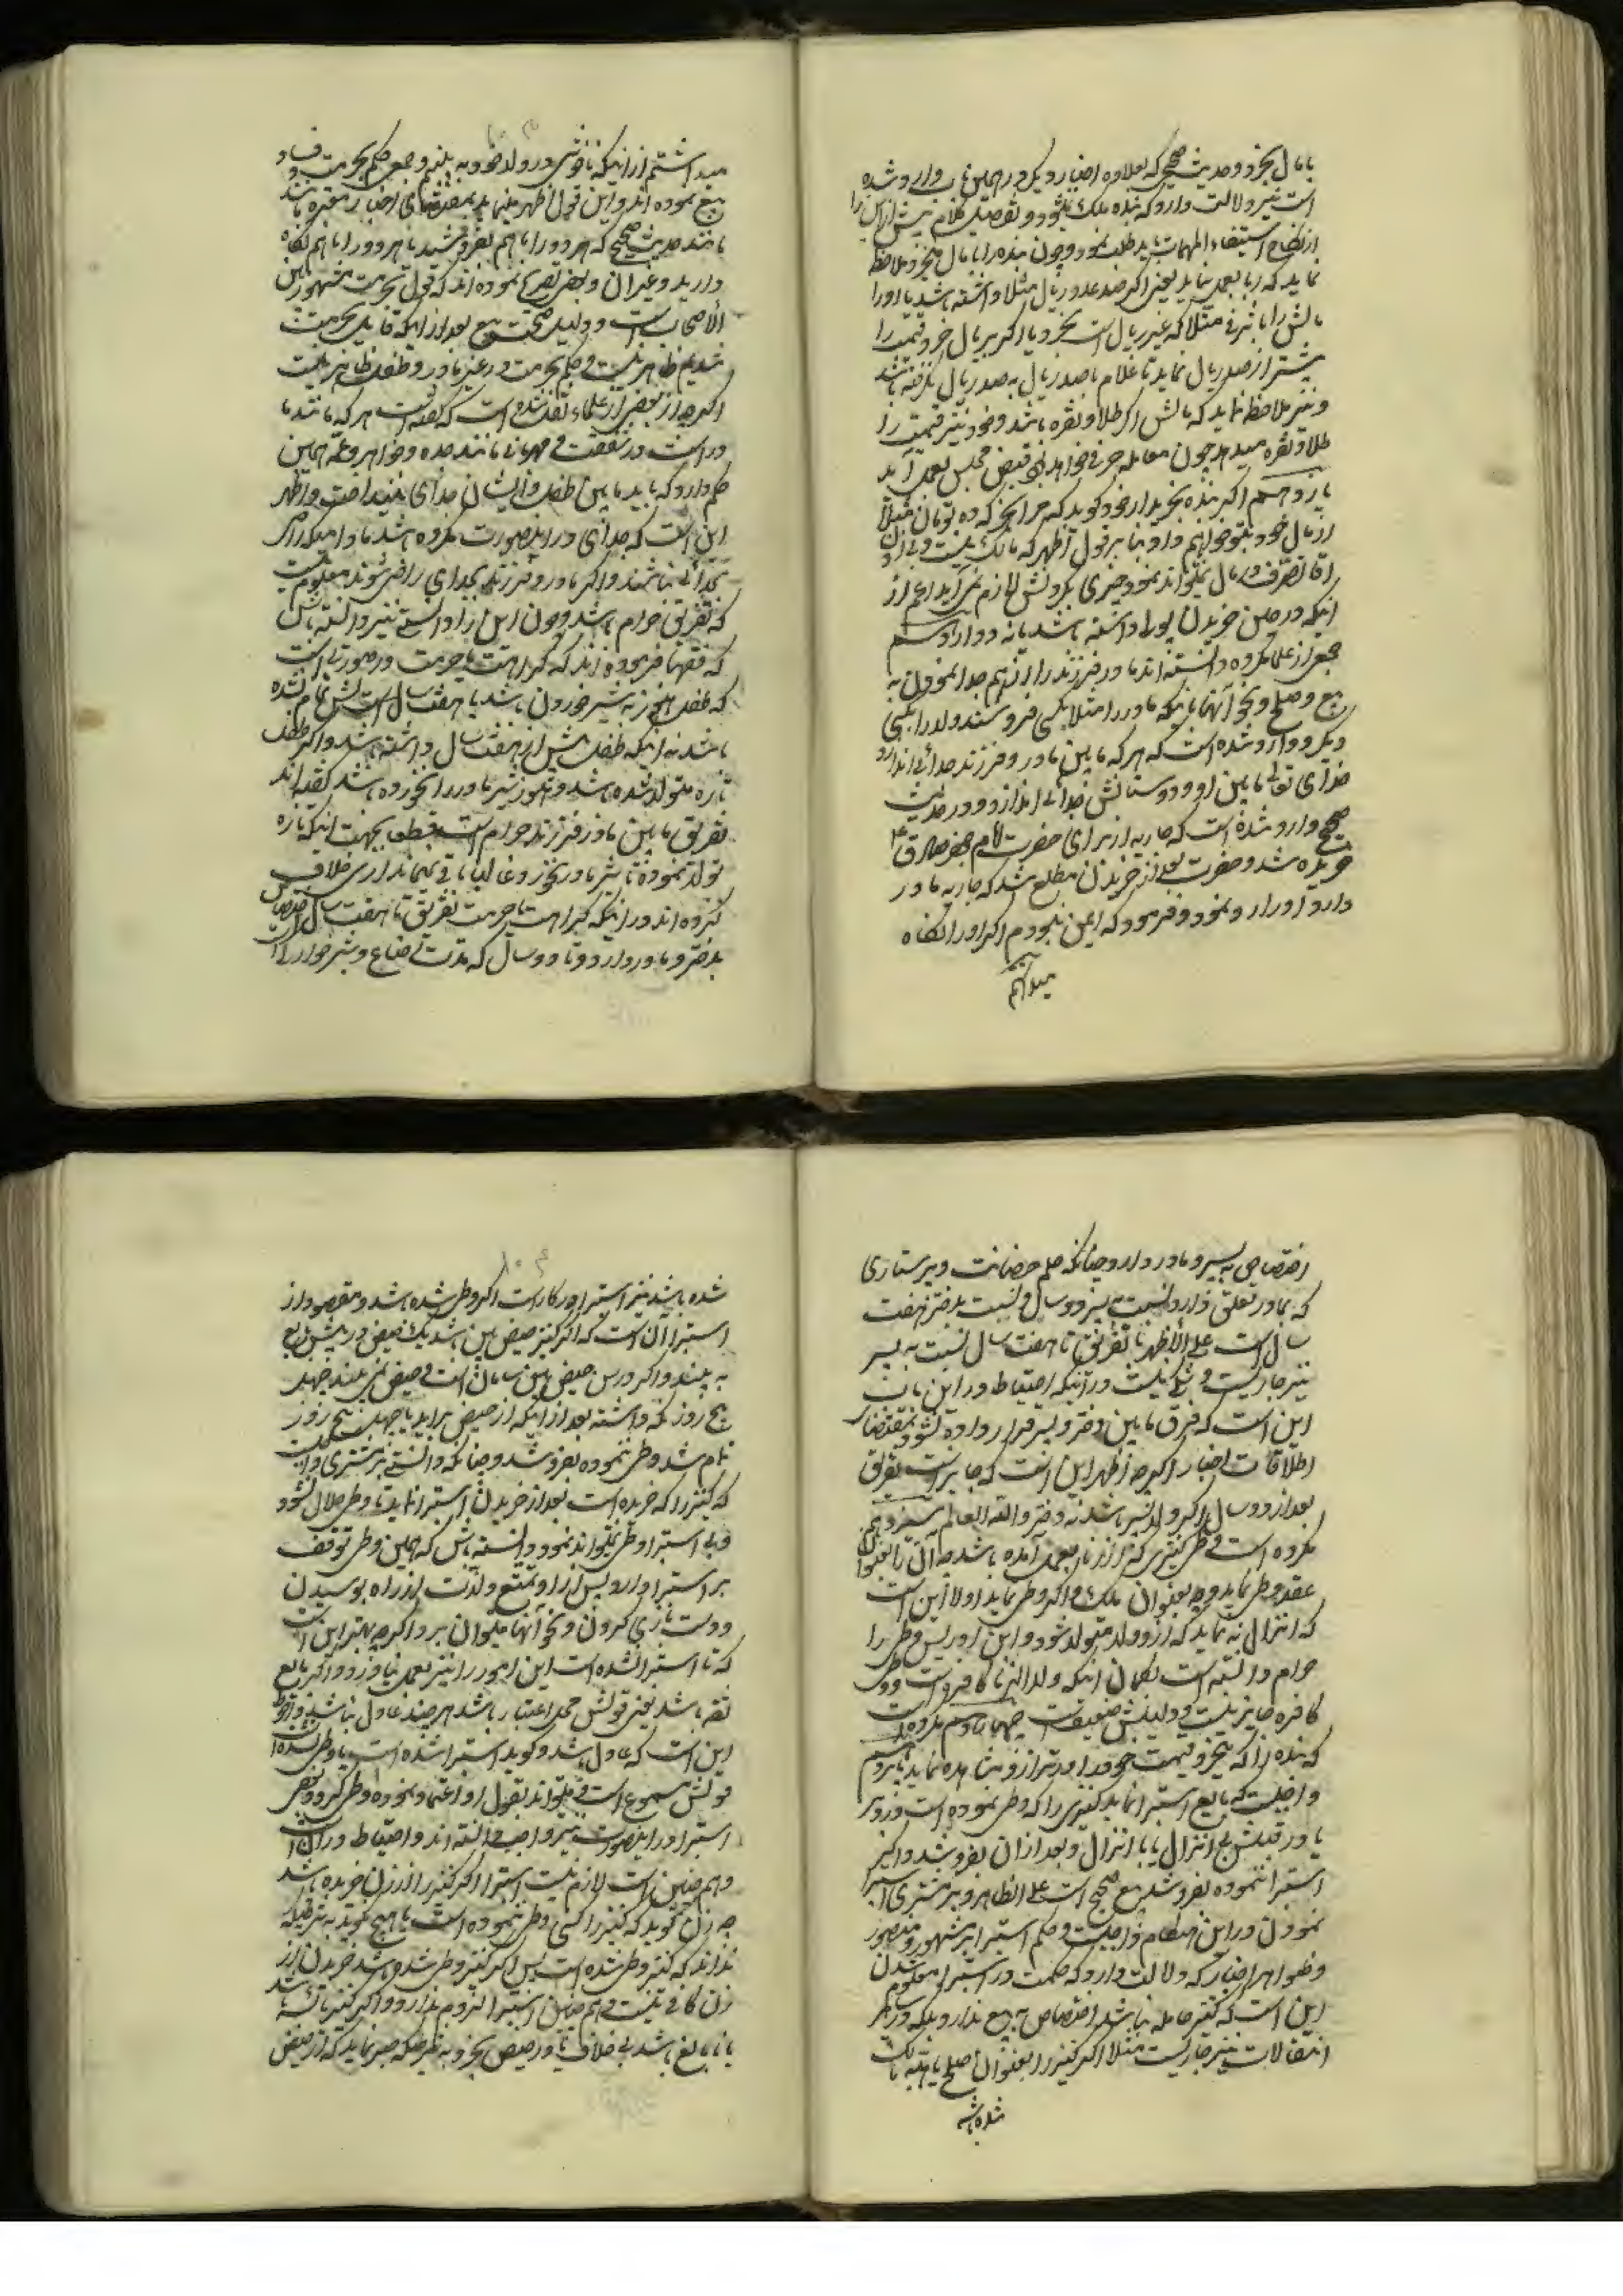 با مال بخرد و حدیث صحیح که بعلاوه اخبار دیگر در همین باب وارد شده
است نیز دلالت دارد که بنده ملک میشود و تفصیل کلام بیش از این را
از نکاح استیفاء المهمات باید طلب نمود و چون بنده را با مال میخرد ملاحظه
نماید که ربا بعمل نیاید یعنی اگر صد عدد ریال مثلا داشته باشد یا او را
مالش را با شرفی مثلا که غیر ریال است بخرد یا اگر بریال خرد قیمت را
بیشتر از صد ریال نماید تا غلام با صد ریال به صد ریال نگرفته باشد
و نیز ملاحظه نماید که مالش اگر طلا و نقره باشد و خود نیز قیمت را
طلا و نقره میدهد چون معامله صرفی خواهد بود قبض مجلس بعمل آید
یازدهم اگر بنده بخریدار خود گوید که مرا بخر که ده تومان مثلا
از مال خود بتو خواهم داد بنا بر قول اظهر که مالک نیست و بی اذن
آقا تصرف در مال نمیتواند نمود چیزی بگردنش لازم نمی آید اعم از
اینکه در حین خریدن پولی داشته باشد یا نه دوازدهم
جمعی از علما مکروه دانسته اند مادر و فرزند را از هم جدا نمودن به
بیع و صلح و نحو آنها باینکه مادر را مثلا بکسی فروشند و ولد را بکسی
دیگر و وارد شده است که هر که مابین مادر و فرزند جدائی اندازد
خدای تعالی مابین او و دوستانش جدائی اندازد و در حدیث
صحیح وارد شده است که جاریه از برای حضرت امام جعفر صادق ع
خریده شد و حضرت بعد از خریدن مطلع شد که جاریه مادر
دارد او را رد نمود و فرمود که ایمن نبودم اگر او را نگاه
میداشتم
میداشتم از اینکه ناخوشی در ولد خود به بینم و جمعی حکم بحرمت و فساد
بیع نموده اند و این قول اظهر مینماید بمقتضای اخبار معتبره باشد
مانند حدیث صحیح که هر دو را با هم بفروشید یا هر دو را با هم نگاه
دارید و غیر آن و بعضی تصریح نموده اند که قول بحرمت مشهور بین
الاصحاب است و دلیل صحت بیع بعد از اینکه قایل بحرمت
شدیم ظاهر نیست و حکم بحرمت در غیر مادر و طفل ظاهر نیست
اگر چه از بعضی از علماء نقل شده است که گفته است هر که مانند ما
در است در شفقت و مهربانی مانند جده و خواهر و عمه همین
حکم دارد که باید مابین طفل و ایشان جدائی نینداخت و اظهر
این است که جدائی در اینصورت مکروه باشد مادامیکه راضی
بجدائی نباشند و اگر مادر و فرزند بجدائی راضی شوند معلوم نیست
که تفریق حرام باشد و چون این را دانستی نیز دانسته باش
که فقها فرموده اند که کراهت یا حرمت در صورتی است
که طفل هنوز به شیر خوردن باشد یا هفت سال است سنش تمام نشده
باشد نه اینکه طفل بیش از هفت سال داشته باشد و اگر طفل
تازه متولد شده باشد و هنوز شیر مادر را نخورده باشد گفته اند
تفریق مابین مادر و فرزند حرام است قطعا بجهت اینکه تازه
تولد نموده تا شیر مادر نخورد غالبا باقی نمیماند آری خلاف
کرده اند در اینکه کراهت یا حرمت تفریق تا هفت سال اختصاص
بدختر و مادر دارد و تا دو سال که مدت رضاع و شیرخوارگی است
اختصاصی به پسر و مادر دارد چنانکه حکم حضانت و پرستاری
که بمادر تعلق دارد نسبت به پسر دو سال و نسبت بدختر هفت
سال است علی الاظهر یا تفریق تا هفت سال نسبت به پسر
نیز جاریست و شکی نیست در آنکه احتیاط در این باب
این است که فرق مابین دختر و پسر قرار داده نشود بمقتضای
اطلاقات اخبار اگر چه اظهر این است که جایز است تفریق
بعد از دو سال اگر ولد پسر باشد نه دختر و الله العالم سیزدهم
مکروه است وطی کنیزی که از زنا بعمل آمده باشد چه آن را بعنوان
عقد وطی نماید و چه بعنوان ملک و اگر وطی نماید اولا این است
که انزال نه نماید که از او ولد متولد شود و ابن ادریس وطی را
حرام دانسته است بگمان اینکه ولد الزنا کافر است و وطی
کافره جایز نیست و دلیلش ضعیف است چهاردهم مکروه است
که بنده را که میخرد قیمت خود را در ترازو مشاهده نماید پانزدهم
واجبست که بایع استبرا نماید کنیزی را که وطی نموده است در دبر
یا در قبلش بی انزال یا با انزال و بعد از آن بفروشد و اگر
استبرا ننموده بفروشد بیع صحیح است علی الظاهر و بر مشتری استبرا
نمودن در این هنگام واجبست و حکم استبرا بر مشهور و منصور
و ظواهر اخبار که دلالت دارد که حکمت در استبرا معلوم شدن
این است که کنیز حامله نباشد اختصاص به بیع ندارد بلکه در سایر
انتقالات نیز جاریست مثلا اگر کنیز را بعنوان صلح یا هبه مالک
شده باشد
شده باشد نیز استبرا در کار است اگر وطی شده باشد و مقصود از
استبرا آن است که اگر کنیز حیض بین باشد یک حیض در پیش بایع
به بیند و اگر در سن حیض بین سالان است و حیض نمی بیند چهل
پنج روز نگه داشته بعد از اینکه از حیض براید یا چهل پنج روز
تمام شد وطی ننموده بفروشد و چنانکه دانستی بر مشتری واجب است
که کنیز را که خریده است بعد از خریدن استبرا نماید تا وطی حلال شود
و بی استبرا وطی نمیتواند نمود و دانسته باش که همین وطی توقف
بر استبرا دارد پس از او تمتع و لذت از راه بوسیدن
و دست بازی کردن و نحو آنها میتوان برد اگر چه بهتر این است
که تا استبرا نشده است این امور را نیز بعمل نیاورد و اگر بایع
ثقه باشد یعنی قولش محل اعتبار باشد هر چند عادل نباشد و احوط
این است که عادل باشد و گوید استبرا شده است یا وطی نشده است
قولش مسموع است و میتواند بقول او اعتماد نموده وطی کرد و بعضی
استبرا در اینصورت نیز واجب دانسته اند و احتیاط در آن است
و هم چنین است لازم نیست استبرا اگر کنیز را از زن خریده باشد
چه زن گوید که کنیز را کسی وطی ننموده است یا هیچ نگوید به شرطیکه
نداند که کنیز وطی شده است پس اگر کنیز وطی شده باشد خریدن از
زن کافی نیست و هم چنین استبرا لزوم ندارد اگر کنیز یائسه باشد
یا نابالغ باشد بی خلاف یا در حیض بخرد به شرطیکه صبر نماید که از حیض